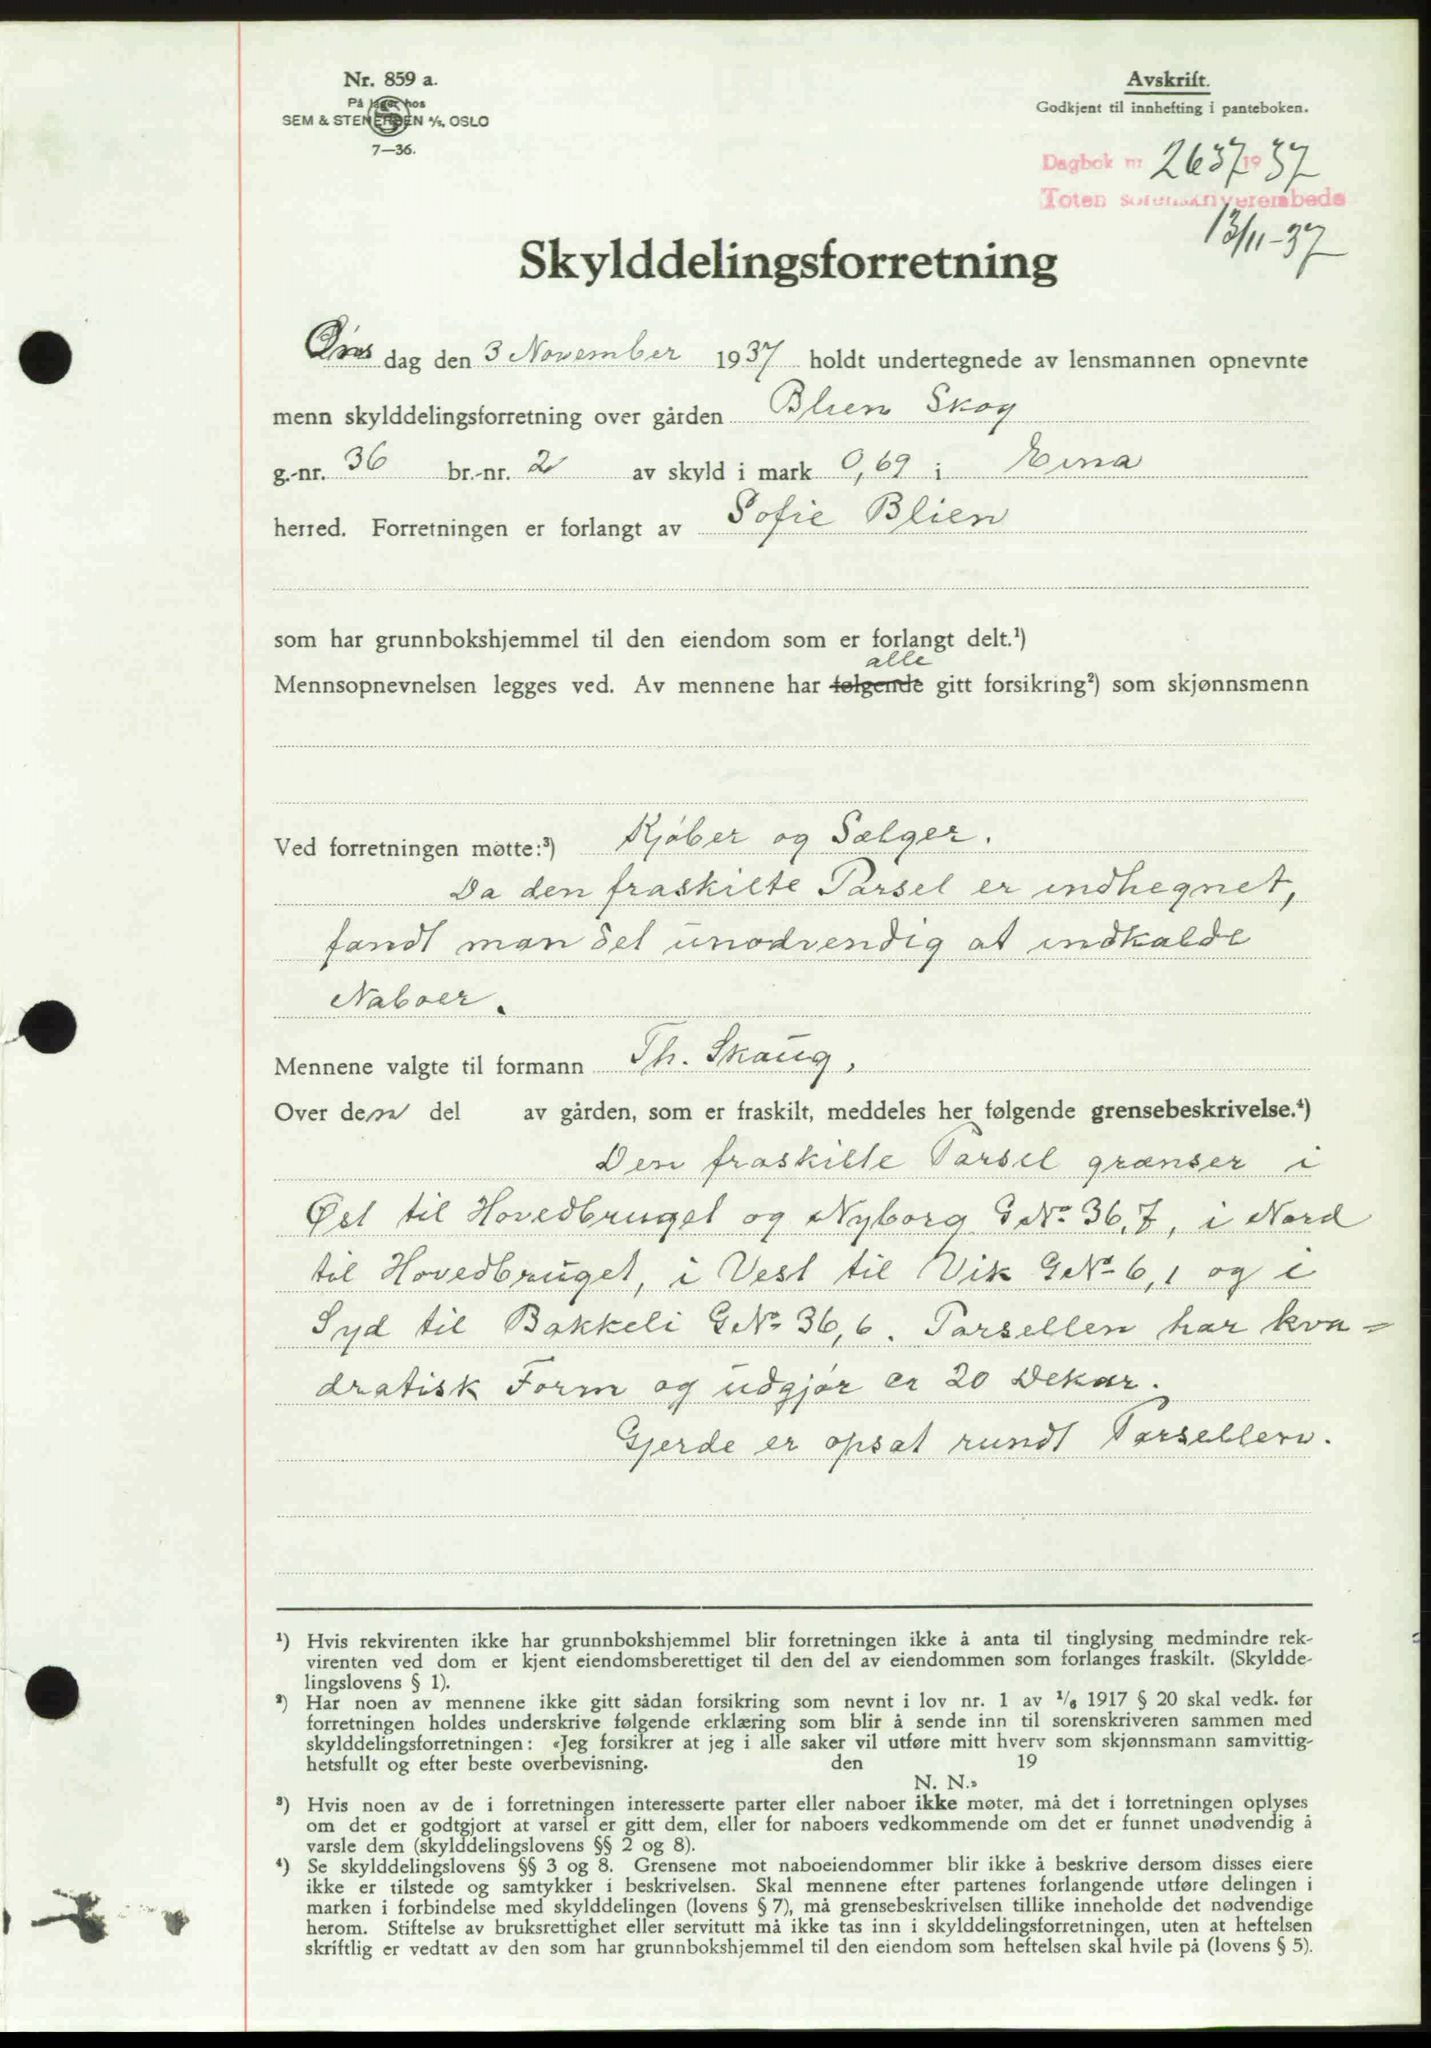 Nr. 859 a.
På lager hos
SEM & STENERSEN A/S, OSLO
7—36.
Avskrift.
Godkjent til innhefting i panteboken.
Dagbok nr 2637 1937
Toten sorenskriverembede
13/11-37
Skylddelingsforretning
Ons dag den 3 November 1937 holdt undertegnede av lensmannen opnevnte
menn skylddelingsforretning over gården Blien Skog
g.-nr. 36 br.-nr. 2 av skyld i mark 0,69 i Eina
herred. Forretningen er forlangt av Sofie Blien
som har grunnbokshjemmel til den eiendom som er forlangt delt.¹)
alle
Mennsopnevnelsen legges ved. Av mennene har følgende gitt forsikring²) som skjønnsmenn
Ved forretningen møtte:³) Kjøber og Sælger.
Da den fraskilte Parsel er indhegnet,
fandt man det unødvendig at indkalde
Naboer.
Mennene valgte til formann Th. Skaug,
Over den del av gården, som er fraskilt, meddeles her følgende grensebeskrivelse.⁴)
Den fraskilte Parsel grænser i
Øst til Hovedbruget og Nyborg GNº 36,7, i Nord
til Hovedbruget, i Vest til Vik GNº 6,1 og i
Syd til Bakkeli GNº 36,6. Parsellen har kva=
dratisk Form og udgjør ca 20 Dekar.
Gjerde er opsat rundt Parsellen.
¹) Hvis rekvirenten ikke har grunnbokshjemmel blir forretningen ikke å anta til tinglysing medmindre rek-
virenten ved dom er kjent eiendomsberettiget til den del av eiendommen som forlanges fraskilt. (Skyldde-
lingslovens § 1).
²) Har noen av mennene ikke gitt sådan forsikring som nevnt i lov nr. 1 av 1/6 1917 § 20 skal vedk. før
forretningen holdes underskrive følgende erklæring som blir å sende inn til sorenskriveren sammen med
skylddelingsforretningen: «Jeg forsikrer at jeg i alle saker vil utføre mitt hverv som skjønnsmann samvittig-
hetsfullt og efter beste overbevisning. den 19
N. N.»
³) Hvis noen av de i forretningen interesserte parter eller naboer ikke møter, må det i forretningen oplyses
om det er godtgjort at varsel er gitt dem, eller for naboers vedkommende om det er funnet unødvendig å
varsle dem (skylddelingslovens §§ 2 og 8).
⁴) Se skylddelingslovens §§ 3 og 8. Grensene mot naboeiendommer blir ikke å beskrive dersom disses eiere
ikke er tilstede og samtykker i beskrivelsen. Skal mennene efter partenes forlangende utføre delingen i
marken i forbindelse med skylddelingen (lovens § 7), må grensebeskrivelsen tillike inneholde det nødvendige
herom. Stiftelse av bruksrettighet eller servitutt må ikke tas inn i skylddelingsforretningen, uten at heftelsen
skriftlig er vedtatt av den som har grunnbokshjemmel til den eiendom som heftelsen skal hvile på (lovens § 5).